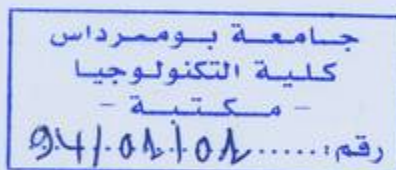 جامعة بومرداس
كلية التكنولوجيا
- مكتبة -
رقم:......94/.01/01